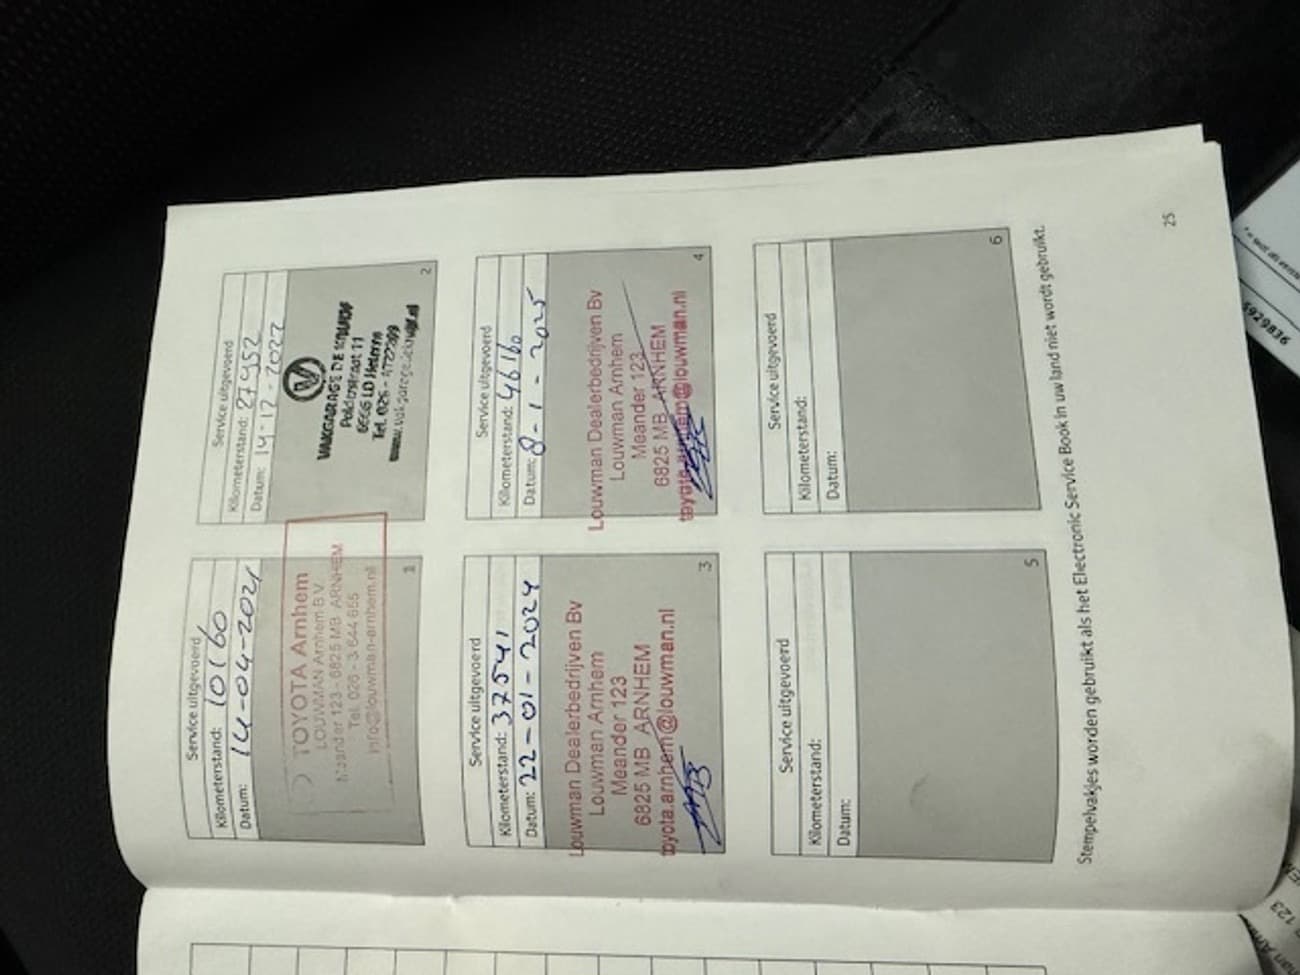 Service uitgevoerd
Kilometerstand: 10160
Datum: 14-04-2021
TOYOTA Arnhem
LOUWMAN Arnhem B.V.
Meander 123 - 6825 MB ARNHEM
Tel. 026 - 3 644 655
info@louwman-arnhem.nl
1
Service uitgevoerd
Kilometerstand: 27952
Datum: 14-12-2022
VAKGARAGE DE
11
6666 LD Heteren
Tel. 026 - 4722399
2
Service uitgevoerd
Kilometerstand: 37541
Datum: 22-01-2024
Louwman Dealerbedrijven Bv
Louwman Arnhem
Meander 123
6825 MB ARNHEM
toyota.arnhem@louwman.nl
3
Service uitgevoerd
Kilometerstand: 46160
Datum: 8-1-2025
Louwman Dealerbedrijven Bv
Louwman Arnhem
Meander 123
6825 MB ARNHEM
toyota.arnhem@louwman.nl
4
Service uitgevoerd
Kilometerstand:
Datum:
5
Service uitgevoerd
Kilometerstand:
Datum:
6
Stempelvakjes worden gebruikt als het Electronic Service Book in uw land niet wordt gebruikt.
25
6929836
123